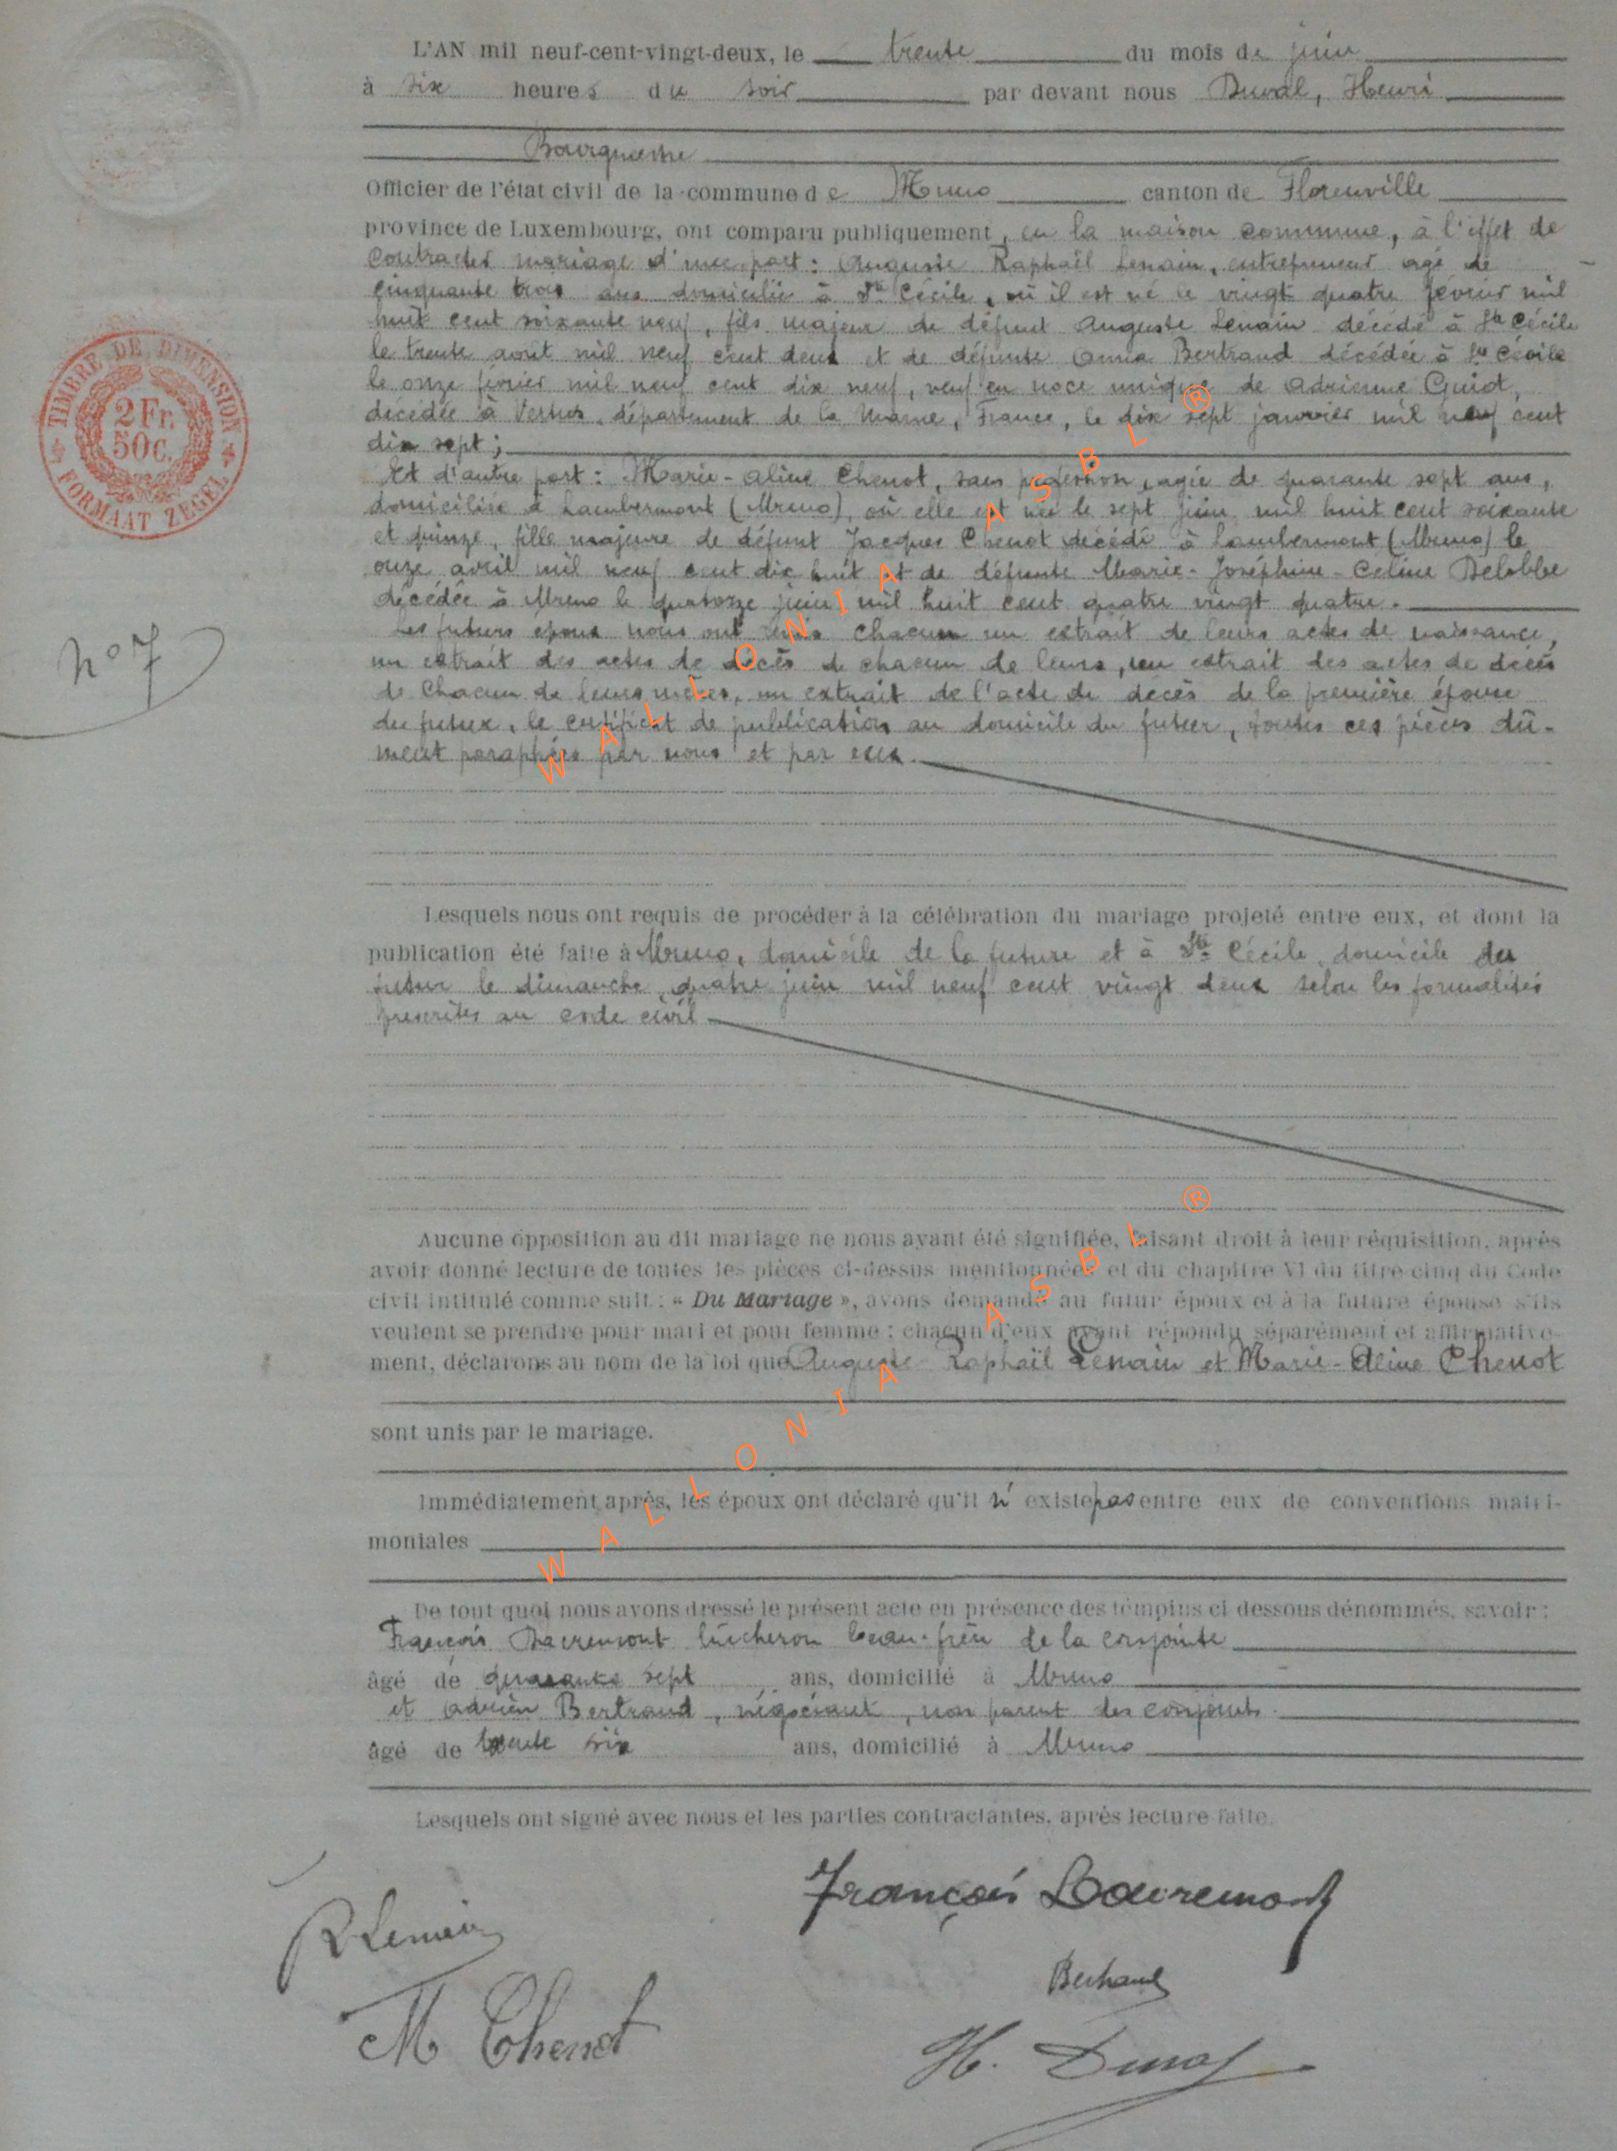 L'AN mil neuf-cent-vingt-deux, le trente du mois de juin
à six heures du soir par devant nous Duval, Henri
Bourgmestre
Officier de l'état civil de la commune de Muno canton de Florenville
province de Luxembourg, ont comparu publiquement, en la maison commune, à l'effet de
contracter mariage d'une part : Auguste Raphaël Lenain, entrepreneur agé de
cinquante trois ans domicilié à Ste Cécile, où il est né le vingt quatre février mil
huit cent soixante neuf, fils majeur de défunt Auguste Lenain décédé à Ste Cécile
le trente août mil neuf cent deux et de défunte Anna Bertrand décédée à Ste Cécile
le onze février mil neuf cent dix neuf, veuf en noce unique de Adrienne Guiot,
décédée à Vertus, département de la Marne, France, le dix sept janvier mil neuf cent
dix sept ;
Et d'autre part : Marie-Aline Chenot, sans profession, agée de quarante sept ans,
domiciliée à Lambermont (Muno), où elle est née le sept juin mil huit cent soixante
et quinze, fille majeure de défunt Jacques Chenot décédé à Lambermont (Muno) le
onze avril mil neuf cent dix huit et de défunte Marie-Joséphine-Celine Delobbe
décédée à Muno le quatorze juin mil huit cent quatre vingt quatre.
Les futurs epoux nous ont remis chacun un extrait de leurs actes de naissance,
un extrait des actes de décès de chacun de leurs, un extrait des actes de décès
de chacun de leurs mères, un extrait de l'acte de décès de la première épouse
du futur, le certificat de publication au domicile du futur, toutes ces pièces dû-
ment paraphées par nous et par eux.
N° 7
TIMBRE DE DIMENSION
2 Fr.
50 C.
FORMAAT ZEGEL
Lesquels nous ont requis de procéder à la célébration du mariage projeté entre eux, et dont la
publication été faite à Muno, domicile de la future et à Ste Cécile, domicile du
futur le dimanche quatre juin mil neuf cent vingt deux selon les formalités
prescrites au code civil
Aucune opposition au dit mariage ne nous ayant été signifiée, faisant droit à leur réquisition, après
avoir donné lecture de toutes les pièces ci-dessus mentionnées et du chapitre VI du titre cinq du Code
civil intitulé comme suit : « Du Mariage », avons demandé au futur époux et à la future épouse s'ils
veulent se prendre pour mari et pour femme ; chacun d'eux ayant répondu séparément et affirmative-
ment, déclarons au nom de la loi que Auguste Raphaël Lenain et Marie-Aline Chenot
sont unis par le mariage.
Immédiatement après, les époux ont déclaré qu'il n'existe pas entre eux de conventions matri-
moniales
De tout quoi nous avons dressé le présent acte en présence des témoins ci dessous dénommés, savoir :
François Dacremont bûcheron beau-frère de la conjointe
âgé de quarante sept ans, domicilié à Muno
et Adrien Bertrand, négociant, non parent des conjoints.
âgé de trente six ans, domicilié à Muno
Lesquels ont signé avec nous et les parties contractantes, après lecture faite.
R Lenain
François Dacremont
M Chenot
Bertrand
H. Duval
WALLONIA ASBL ®
WALLONIA ASBL ®